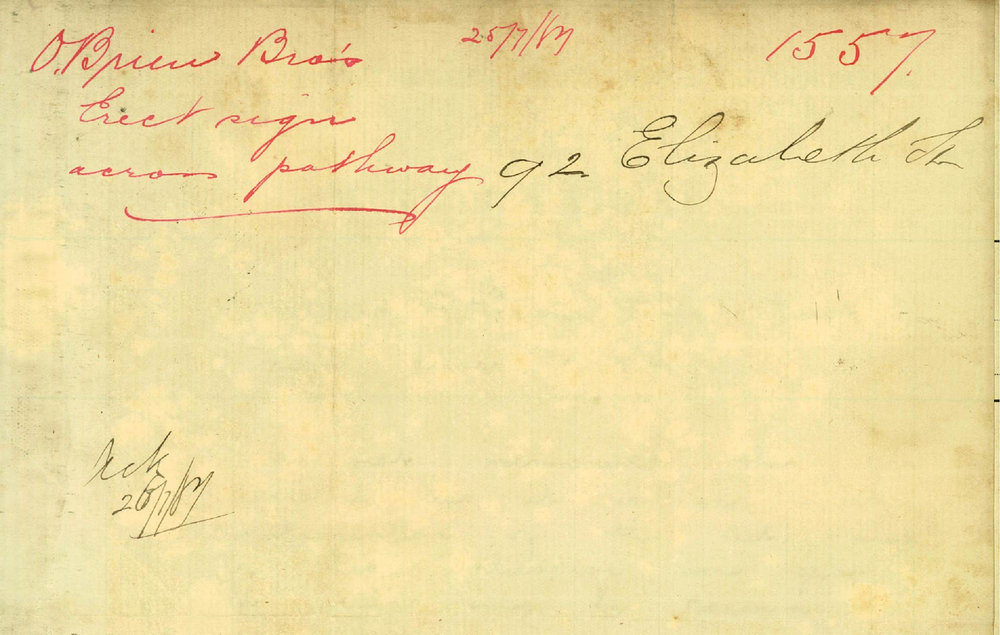 O'Brien Bro's 25/7/87 1557.
Erect sign
across pathway 92 Elizabeth St
Ack
26/7/87